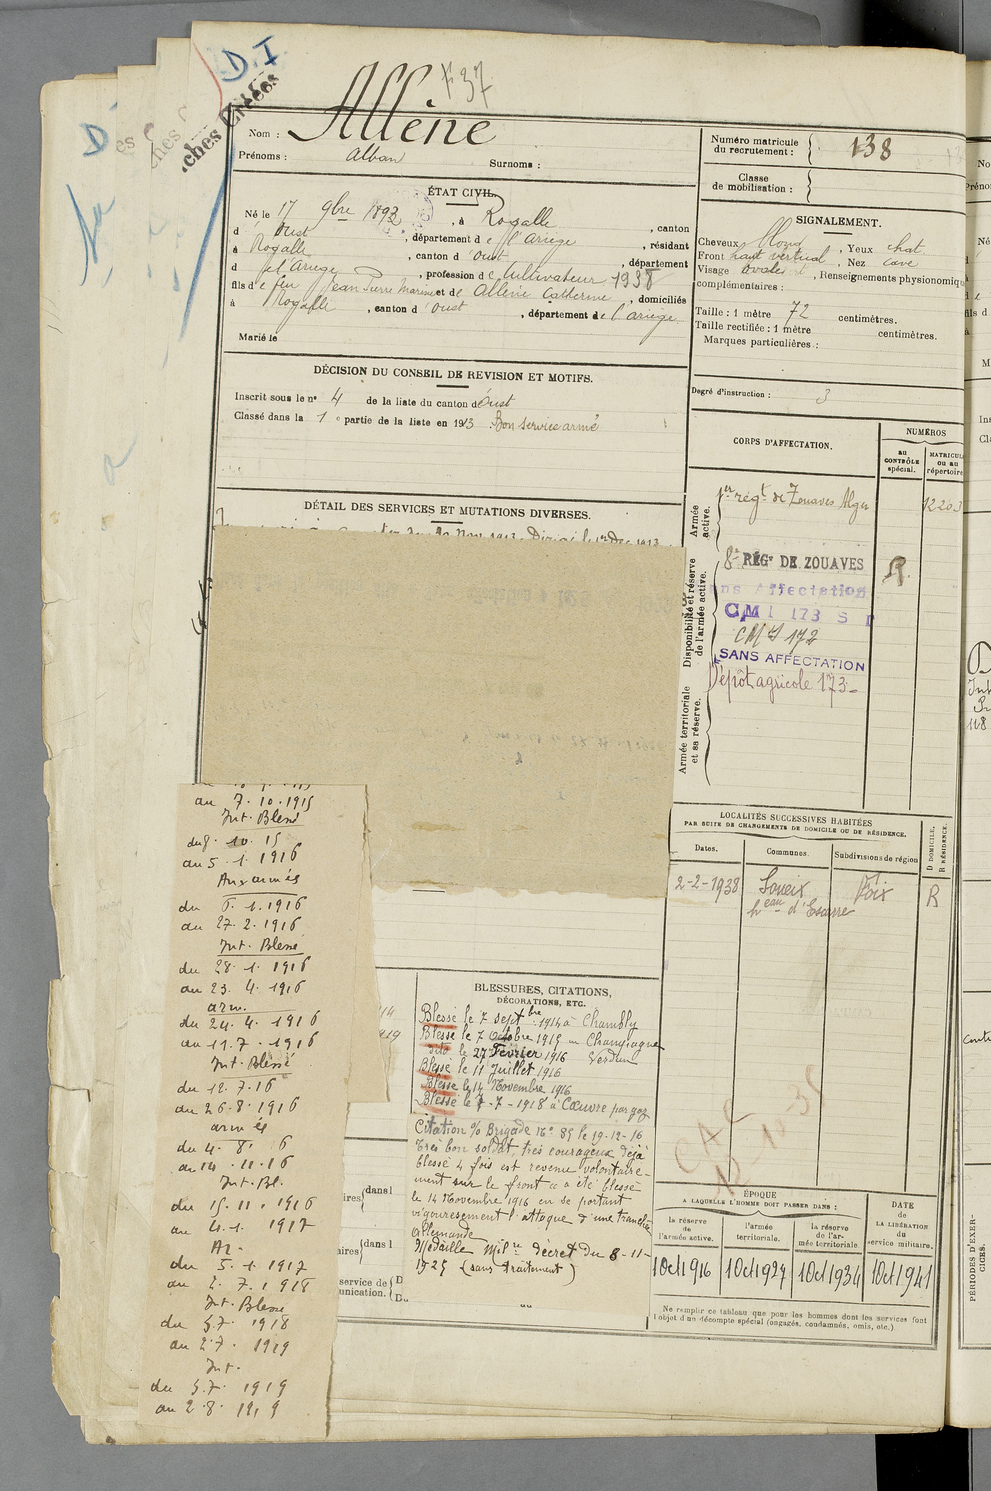 D. I
F 37
ches Créées
Nom : Allène
Prénoms : Alban Surnoms :
Numéro matricule du recrutement : 138
Classe de mobilisation :
ÉTAT CIVIL.
Né le 17 9bre 1893, à Rogalle, canton
d'Oust, département de l'Ariège, résidant
à Rogalle, canton d'Oust, département
d de l'Ariège, profession de Cultivateur 1938
fils de feu Jean Pierre Marine et de Allène Catherine, domiciliés
à Rogalle, canton d'Oust, département de l'Ariège.
Marié le
SIGNALEMENT.
Cheveux blond, Yeux chat.
Front haut vertical, Nez cave
Visage ovale, Renseignements physionomiqu
complémentaires :
Taille : 1 mètre 72 centimètres.
Taille rectifiée : 1 mètre centimètres.
Marques particulières :
Degré d'instruction : 3
DÉCISION DU CONSEIL DE REVISION ET MOTIFS.
Inscrit sous le n° 4 de la liste du canton d'Oust
Classé dans la 1e partie de la liste en 1913 Bon service armé
DÉTAIL DES SERVICES ET MUTATIONS DIVERSES.
Nov 1913 Dirigé le 1er Dec 1913
CORPS D'AFFECTATION.
NUMÉROS
au CONTRÔLE spécial.
MATRICULE ou au répertoire
Armée active.
1er régt de Zouaves Alger
12203
Disponibilité et réserve de l'armée active.
8e RÉGt DE ZOUAVES
R.
Sans Affectation
C M I 173 S
CM I 172
SANS AFFECTATION
Armée territoriale et sa réserve.
Dépôt agricole 173
LOCALITÉS SUCCESSIVES HABITÉES
PAR SUITE DE CHANGEMENTS DE DOMICILE OU DE RÉSIDENCE.
Dates. Communes. Subdivisions de région D DOMICILE, R RÉSIDENCE.
2-2-1938 Soueix Foix R
heau d'Escarre
au 7.10.1915
Int. Blessé
du 8. 10. 15
au 5. 1. 1916
Aux armés
du 6. 1. 1916
au 27. 2. 1916
Int. Blessé
du 28. 1. 1916
au 23. 4. 1916
arm.
du 24. 4. 1916
au 11. 7. 1916
Int. Blessé
du 12. 7. 16
au 26. 8. 1916
armés
du 4. 8. 6
au 14. 11. 16
Int. Bl.
du 15. 11. 1916
au 4. 1. 1917
Ar.
du 5. 1. 1917
au 2. 7. 1918
Int. Blessé
du 3.7. 1918
au 2.7. 1919
Int.
du 3.7. 1919
au 2.8. 1919
BLESSURES, CITATIONS,
DÉCORATIONS, ETC.
Blessé le 7 septbre 1914 à Chambly
Blessé le 7 Octobre 1915 en Champagne
dito le 27 Février 1916 Verdun
Blessé le 11 Juillet 1916
Blessé le 14 Novembre 1916
Blessé le 7-7-1918 à Cœuvre par gaz
Citation % Brigade N° 85 le 19-12-16
Très bon soldat, très courageux déjà
blessé 4 fois est revenu volontaire-
ment sur le front a été blessé
le 14 Novembre 1916 en se portant
vigouresement l'attaque d'une tranchée
allemande
Médaille milre décret du 8-11-
1925 (sans traitement)
aires dans l
aires dans l
service de
unication.
ÉPOQUE
A LAQUELLE L'HOMME DOIT PASSER DANS :
la réserve de l'armée active. l'armée territoriale. la réserve de l'armée territoriale. DATE de LA LIBÉRATION du service militaire.
1 Oct 1916 1 Oct 1927 1 Oct 1934 1 Oct 1941
Ne remplir ce tableau que pour les hommes dont les services font
l'objet d'un décompte spécial (engagés, condamnés, omis, etc.)
PÉRIODES D'EXER-
CICES.